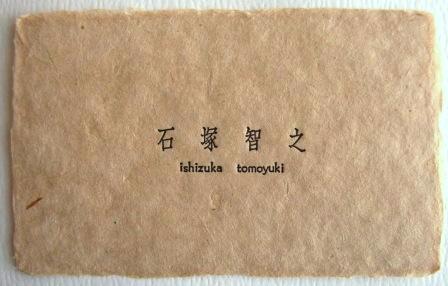 石塚智之
ishizuka tomoyuki